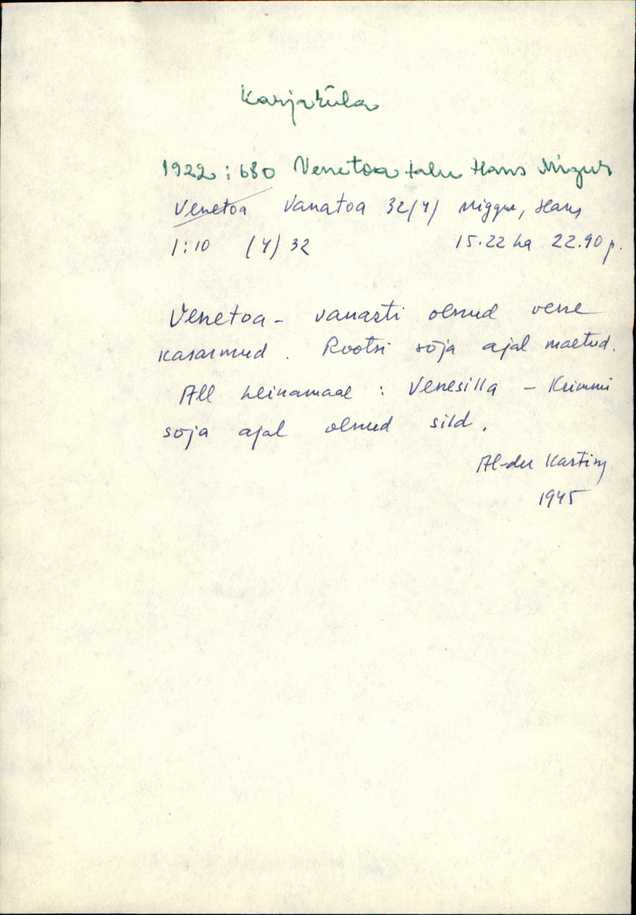 Karjaküla
1922: 680 Venetoa talu Hans Nigur
Venetoa Vanatoa 32(4) Niggu, Hans
1:10 (4) 32 15.22 ha 22.90 p.
Venetoa - vanasti olnud vene
kasarmud. Rootsi sõja ajal maetud.
All heinamaal: Venesilla - Krimmi
sõja ajal olnud sild.
Al-der
1945